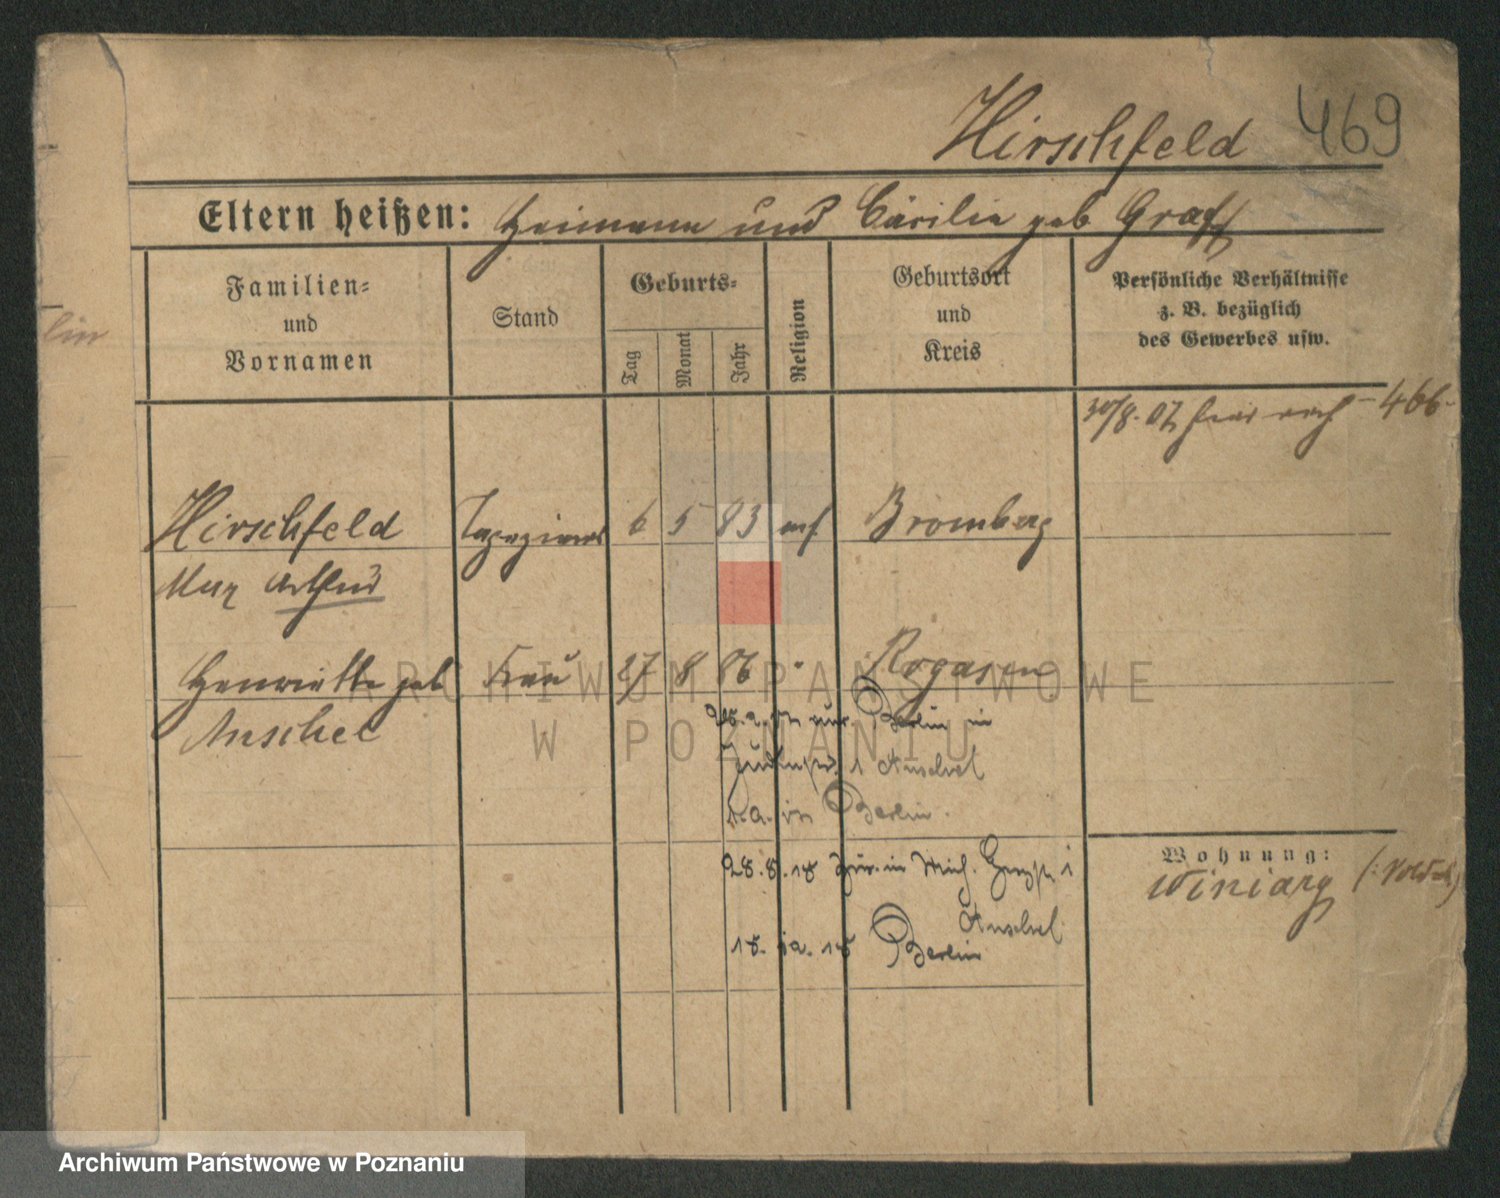 Hirschfeld 469
Eltern heißen: Heimann und Cäcilie geb Graff
Familien=
und
Vornamen
Stand
Geburts=
Tag
Monat
Jahr
Religion
Geburtsort
und
Kreis
Persönliche Verhältnisse
z. B. bezüglich
des Gewerbes usw.
30/8. 07 466.
Hirschfeld Tapezierer 6 5 83 Bromberg
Max Arthur
Henriette geb Frau 27 8 86 " Rogasen
Anschel
Berlin in
1 Anschel
Berlin.
28.8.18 i
Anschel
18. 18 Berlin
Wohnung:
Winiary
lin
ARCHIWUM PAŃSTWOWE
W POZNANIU
Archiwum Państwowe w Poznaniu